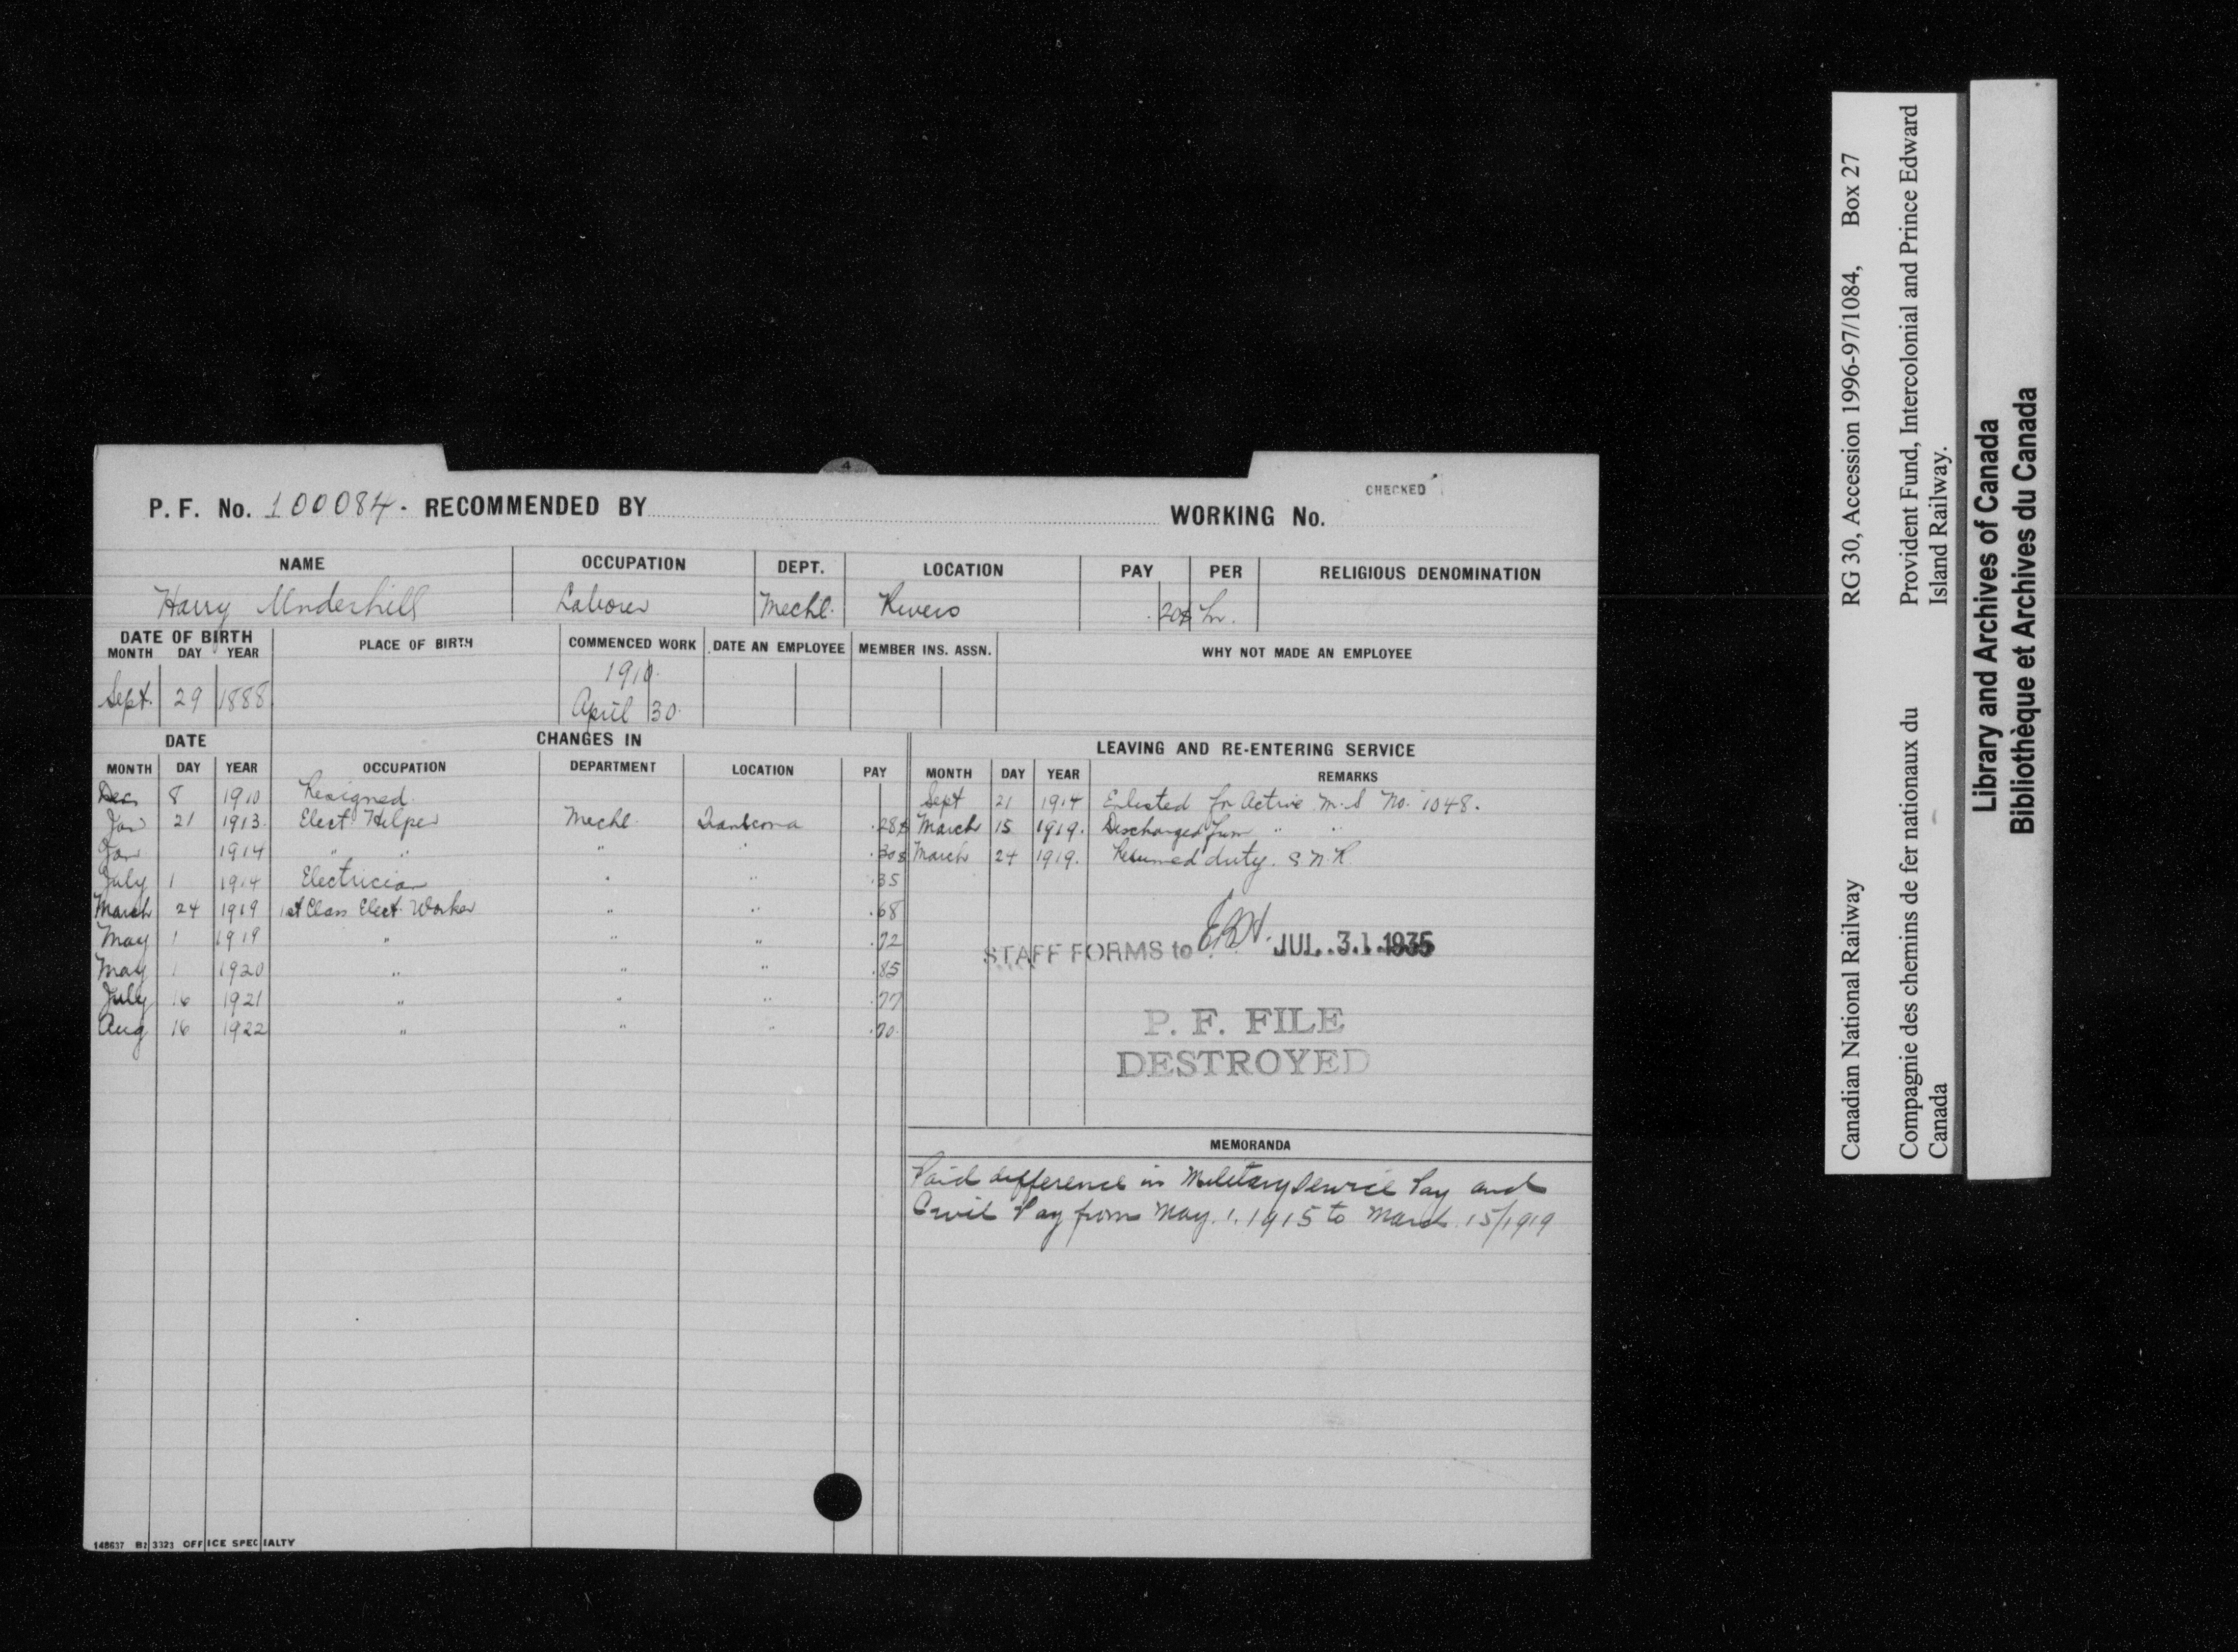 CHECKED
P. F. No. 100084. RECOMMENDED BY WORKING No.
NAME OCCUPATION DEPT. LOCATION PAY PER RELIGIOUS DENOMINATION
Harry Underhill Laborer Mechl. Rivers .20¢ hr.
DATE OF BIRTH
MONTH DAY YEAR PLACE OF BIRTH COMMENCED WORK DATE AN EMPLOYEE MEMBER INS. ASSN. WHY NOT MADE AN EMPLOYEE
1910.
Sept. 29 1888 April 30.
DATE CHANGES IN LEAVING AND RE-ENTERING SERVICE
MONTH DAY YEAR OCCUPATION DEPARTMENT LOCATION PAY MONTH DAY YEAR REMARKS
Dec 8 1910 Resigned Sept 21 1914 Enlisted for Active M.S No. 1048.
Jan 21 1913 Elect. Helper Mechl. Transcona .28¢ March 15 1919. Discharged from " "
Jan 1914 " " " " .30¢ March 24 1919. Resumed duty.
July 1 1914 Electrician " " .35
March 24 1919 1st Class Elect. Worker " " .68
May 1 1919 " " " .72
May 1 1920 " " " .85
July 16 1921 " " " .77
Aug 16 1922 " " " .70
STAFF FORMS to JUL 31 1935
P. F. FILE
DESTROYED
MEMORANDA
Paid difference in Military Service Pay and
Civil Pay from May. 1. 1915 to March 15/1919
148637 3323 OFFICE SPECIALTY
Canadian National Railway RG 30, Accession 1996-97/1084, Box 27
Compagnie des chemins de fer nationaux du Provident Fund, Intercolonial and Prince Edward
Canada Island Railway.
Library and Archives of Canada
Bibliothèque et Archives du Canada